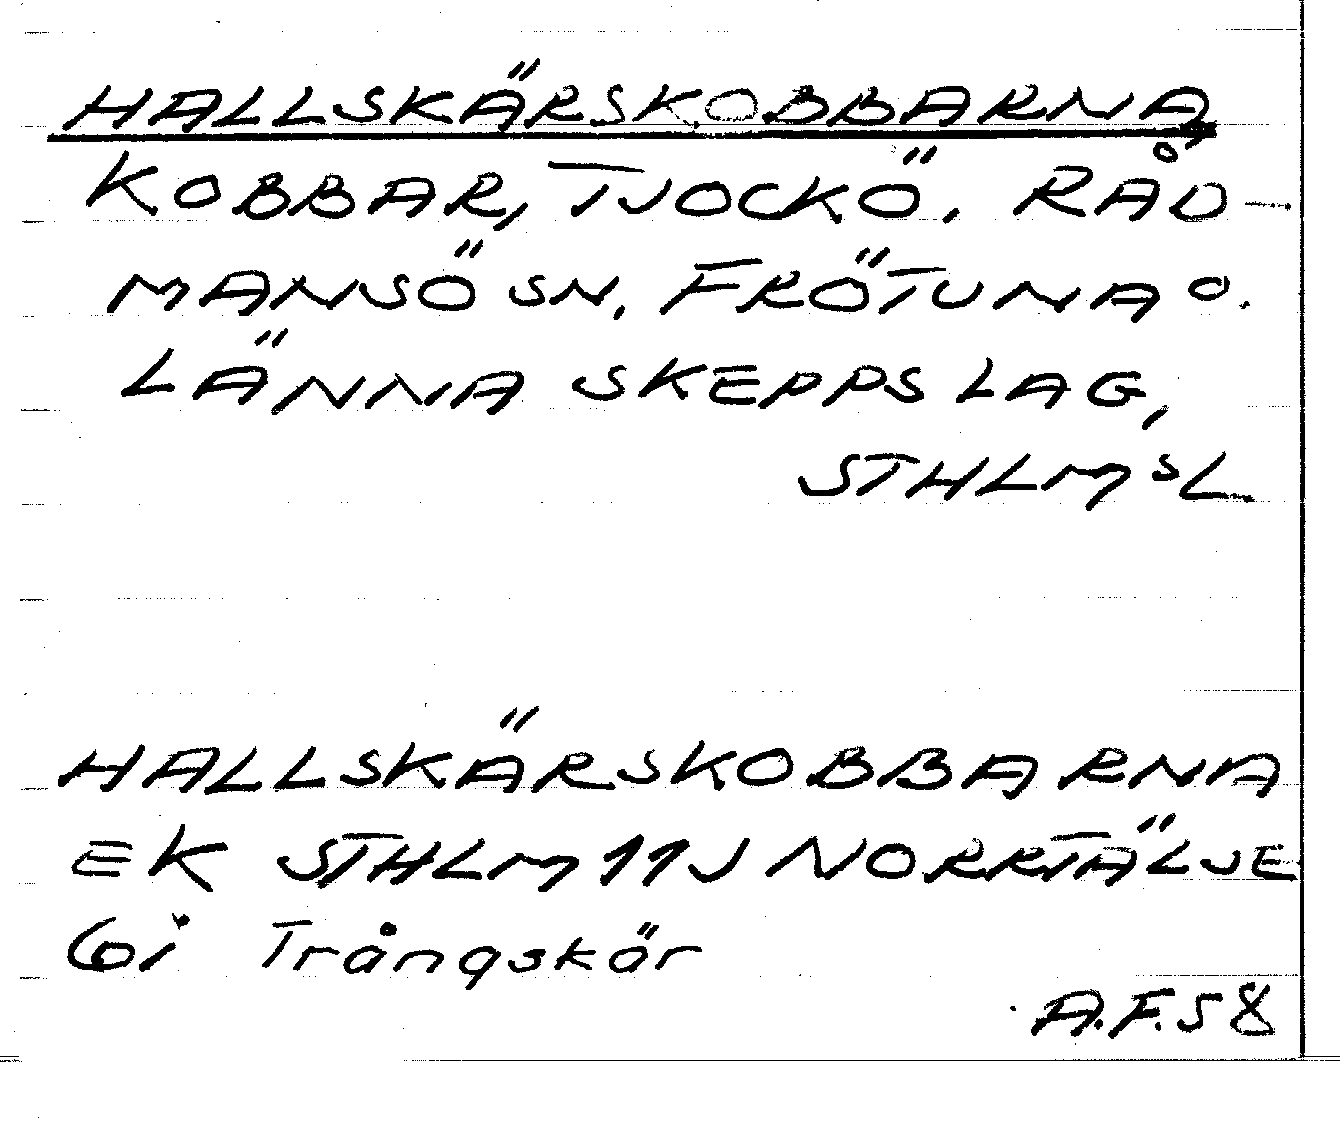 HALLSKÄRSKOBBARNA
KOBBAR, TJOCKÖ, RÅD-
MANSÖ SN, FRÖTUNA O.
LÄNNA SKEPPSLAG,
STHLMSL
HALLSKÄRSKOBBARNA
EK STHLM 11J NORRTÄLJE
6i Trångskär
A.F. 58